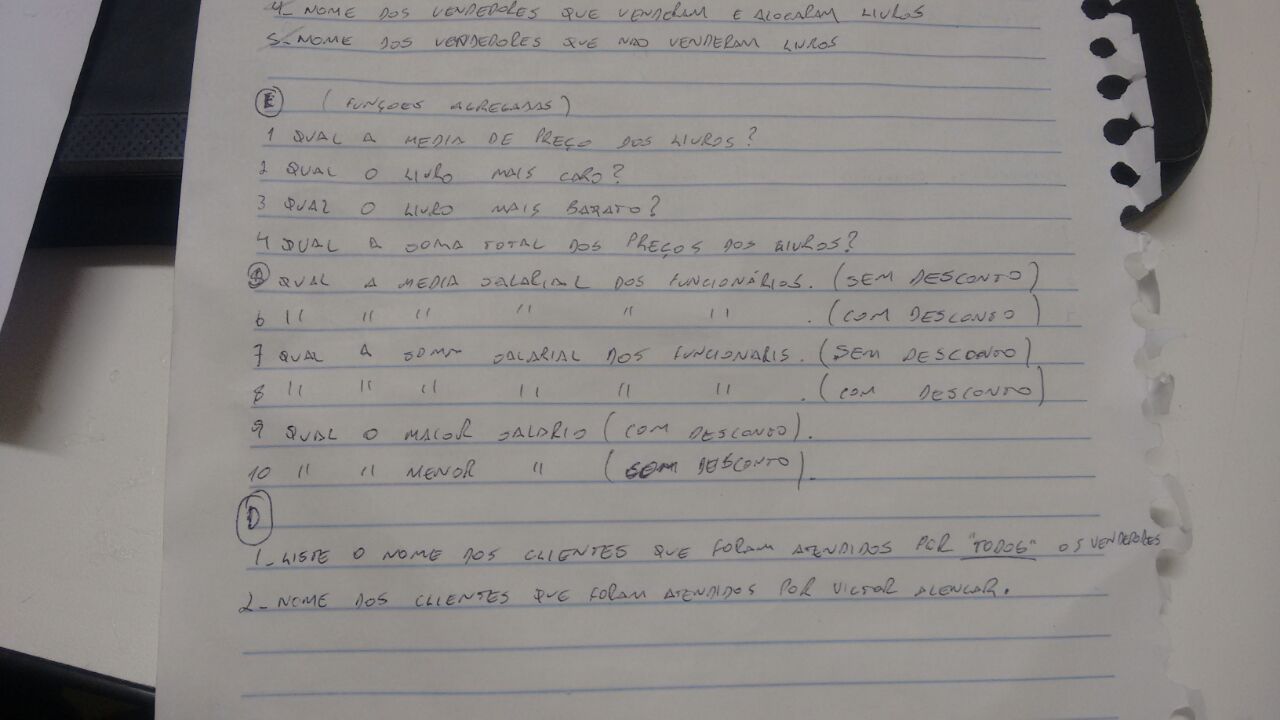 4- NOME DOS VENDEDORES QUE VENDERAM E ALOCARAM LIVROS
5- NOME DOS VENDEDORES QUE NÃO VENDERAM LIVROS
E (FUNÇOES AGREGADAS)
1 QUAL A MEDIA DE PREÇO DOS LIVROS?
2 QUAL O LIVRO MAIS CARO?
3 QUAL O LIVRO MAIS BARATO?
4 QUAL A SOMA TOTAL DOS PREÇOS DOS LIVROS?
QUAL A MEDIA SALARIAL DOS FUNCIONÁRIOS. (SEM DESCONTO)
6 " " " " " " . (COM DESCONTO)
7 QUAL A SOMA SALARIAL DOS FUNCIONARIS. (SEM DESCONTO)
8 " " " " " " . (COM DESCONTO)
9 QUAL O MAIOR SALARIO (COM DESCONTO).
10 " " MENOR " (SEM DESCONTO).
D
1- LISTE O NOME DOS CLIENTES QUE FORAM ATENDIDOS POR "TODOS" OS VENDEDORES
2- NOME DOS CLIENTES QUE FORAM ATENDIDOS POR VICTOR ALENCAR.